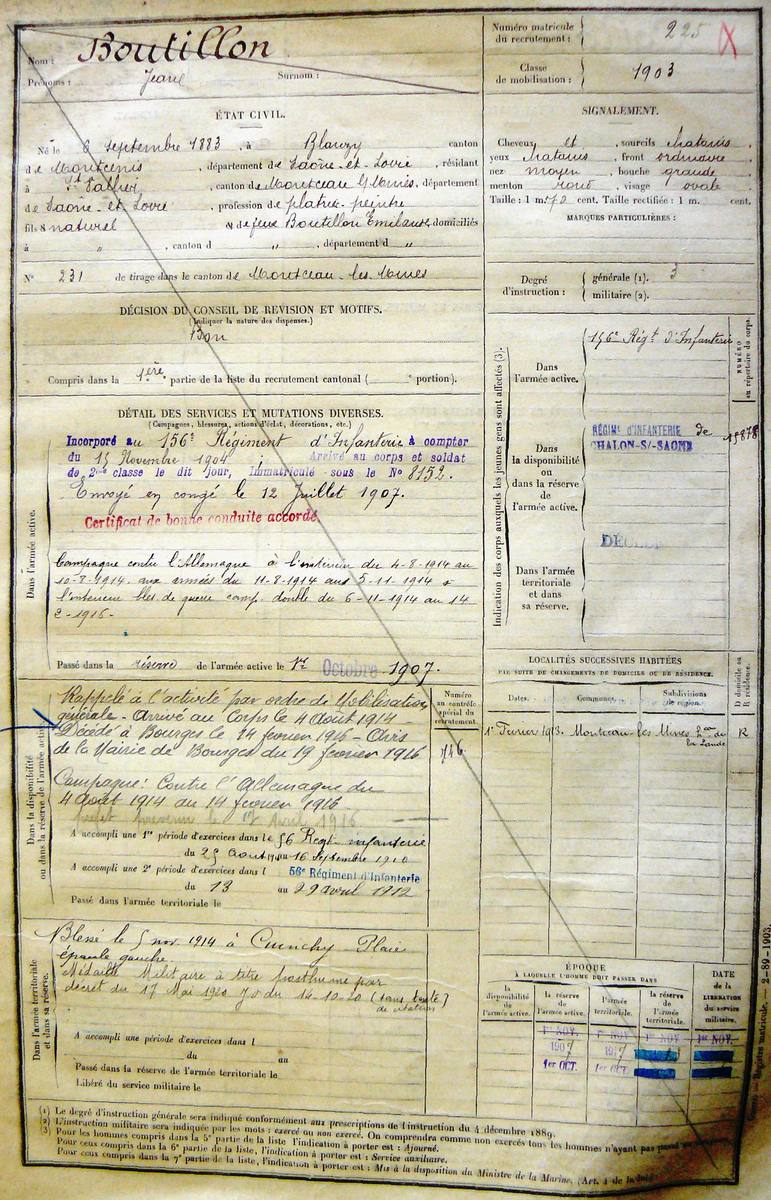 Nom : Boutillon
Prénoms : Jean Surnom :
Numéro matricule du recrutement : 225
Classe de mobilisation : 1903
ÉTAT CIVIL.
Né le 8 septembre 1883, à Blanzy canton
de Montcenis, département de Saône-et-Loire, résidant
à St Vallier, canton de Montceau les Mines, département
de Saône-et-Loire, profession de platre-peintre
fils naturel de feue Boutillon Emilande, domiciliés
à " , canton d " , département d "
N° 231 de tirage dans le canton de Montceau-les-Mines
SIGNALEMENT.
Cheveux et sourcils chatains
yeux chatains, front ordinaire
nez moyen, bouche grande
menton rond, visage ovale
Taille : 1 m. 70 cent. Taille rectifiée : 1 m. cent.
MARQUES PARTICULIÈRES :
Degré d'instruction : générale (1). 3
militaire (2).
DÉCISION DU CONSEIL DE REVISION ET MOTIFS.
(Indiquer la nature des dispenses.)
Bon
Compris dans la 1ère partie de la liste du recrutement cantonal ( portion).
DÉTAIL DES SERVICES ET MUTATIONS DIVERSES.
(Campagnes, blessures, actions d'éclat, décorations, etc.)
Dans l'armée active.
Incorporé au 156e Régiment d'Infanterie à compter
du 15 Novembre 1904 Arrivé au corps et soldat
de 2me classe le dit jour, Immatriculé sous le N° 8152.
Envoyé en congé le 12 Juillet 1907.
Certificat de bonne conduite accordé
Campagne contre l'Allemagne à l'intérieur du 4-8-1914 au
10-8-1914. aux armées du 11-8-1914 au 5-11-1914 à
l'intérieur bles. de guerre camp. double du 6-11-1914 au 14
2-1916-
Passé dans la réserve de l'armée active le 1er Octobre 1907.
Indication des corps auxquels les jeunes gens sont affectés (3).
NUMÉRO au répertoire du corps.
Dans l'armée active. 156e Régt d'Infanterie
Dans la disponibilité ou dans la réserve de l'armée active.
RÉGIMt D'INFANTERIE de
CHALON-S/-SAONE
Dans l'armée territoriale et dans sa réserve.
LOCALITÉS SUCCESSIVES HABITÉES
PAR SUITE DE CHANGEMENTS DE DOMICILE OU DE RÉSIDENCE.
Dates. Communes. Subdivisions de région. D domicile ou R résidence.
1er Février 1913. Montceau les Mines R
Dans la disponibilité ou dans la réserve de l'armée active.
Numéro au contrôle spécial du recrutement.
746
Rappelé à l'activité par ordre de Mobilisation
générale - Arrivé au Corps le 4 Août 1914 -
Décédé à Bourges le 14 février 1916 - Avis
de la Mairie de Bourges du 19 février 1916
Campagne: Contre l'Allemagne du
4 août 1914 au 14 février 1916
A accompli une 1re période d'exercices dans le 56 Régt infanterie
du 25 août au 16 Septembre 1910
A accompli une 2e période d'exercices dans l 56e Régiment d'Infanterie
du 13 au 29 avril 1912
Passé dans l'armée territoriale le
Dans l'armée territoriale et dans sa réserve.
Blessé le 5 nov. 1914 à Cuinchy Plaie
épaule gauche.
Médaille Militaire à titre posthume par
décret du 17 Mai 1920 JO du 14-10-20 (sans texte de citation)
A accompli une période d'exercices dans l
du au
Passé dans la réserve de l'armée territoriale le
Libéré du service militaire le
ÉPOQUE
À LAQUELLE L'HOMME DOIT PASSER DANS
la disponibilité de l'armée active. la réserve de l'armée active. l'armée territoriale. la réserve de l'armée territoriale.
DATE de la LIBÉRATION du service militaire.
1er NOV. 1er NOV. 1er NOV. 1er NOV.
1907 1917
1er OCT. 1er OCT.
(1) Le degré d'instruction générale sera indiqué conformément aux prescriptions de l'instruction du 4 décembre 1889.
(2) L'instruction militaire sera indiquée par les mots : exercé ou non exercé. On comprendra comme non exercés tous les hommes n'ayant pas passé
(3) Pour les hommes compris dans la 5e partie de la liste l'indication à porter est : Ajourné.
Pour ceux compris dans la 6e partie de la liste, l'indication à porter est : Service auxiliaire.
Pour ceux compris dans la 7e partie de la liste, l'indication à porter est : Mis à la disposition du Ministre de la Marine. (Art. 4 de la loi)
Registre matricule. — 2-89-1903.